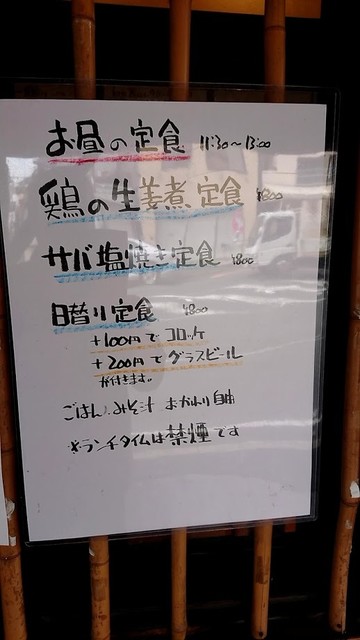 お昼の定食 11:30～13:00
鶏の生姜煮定食 ¥800
サバ塩焼き定食 ¥800
日替り定食 ¥800
+100円でコロッケ
+200円でグラスビール
が付きます。
ごはん、みそ汁 おかわり自由
※ランチタイムは禁煙です